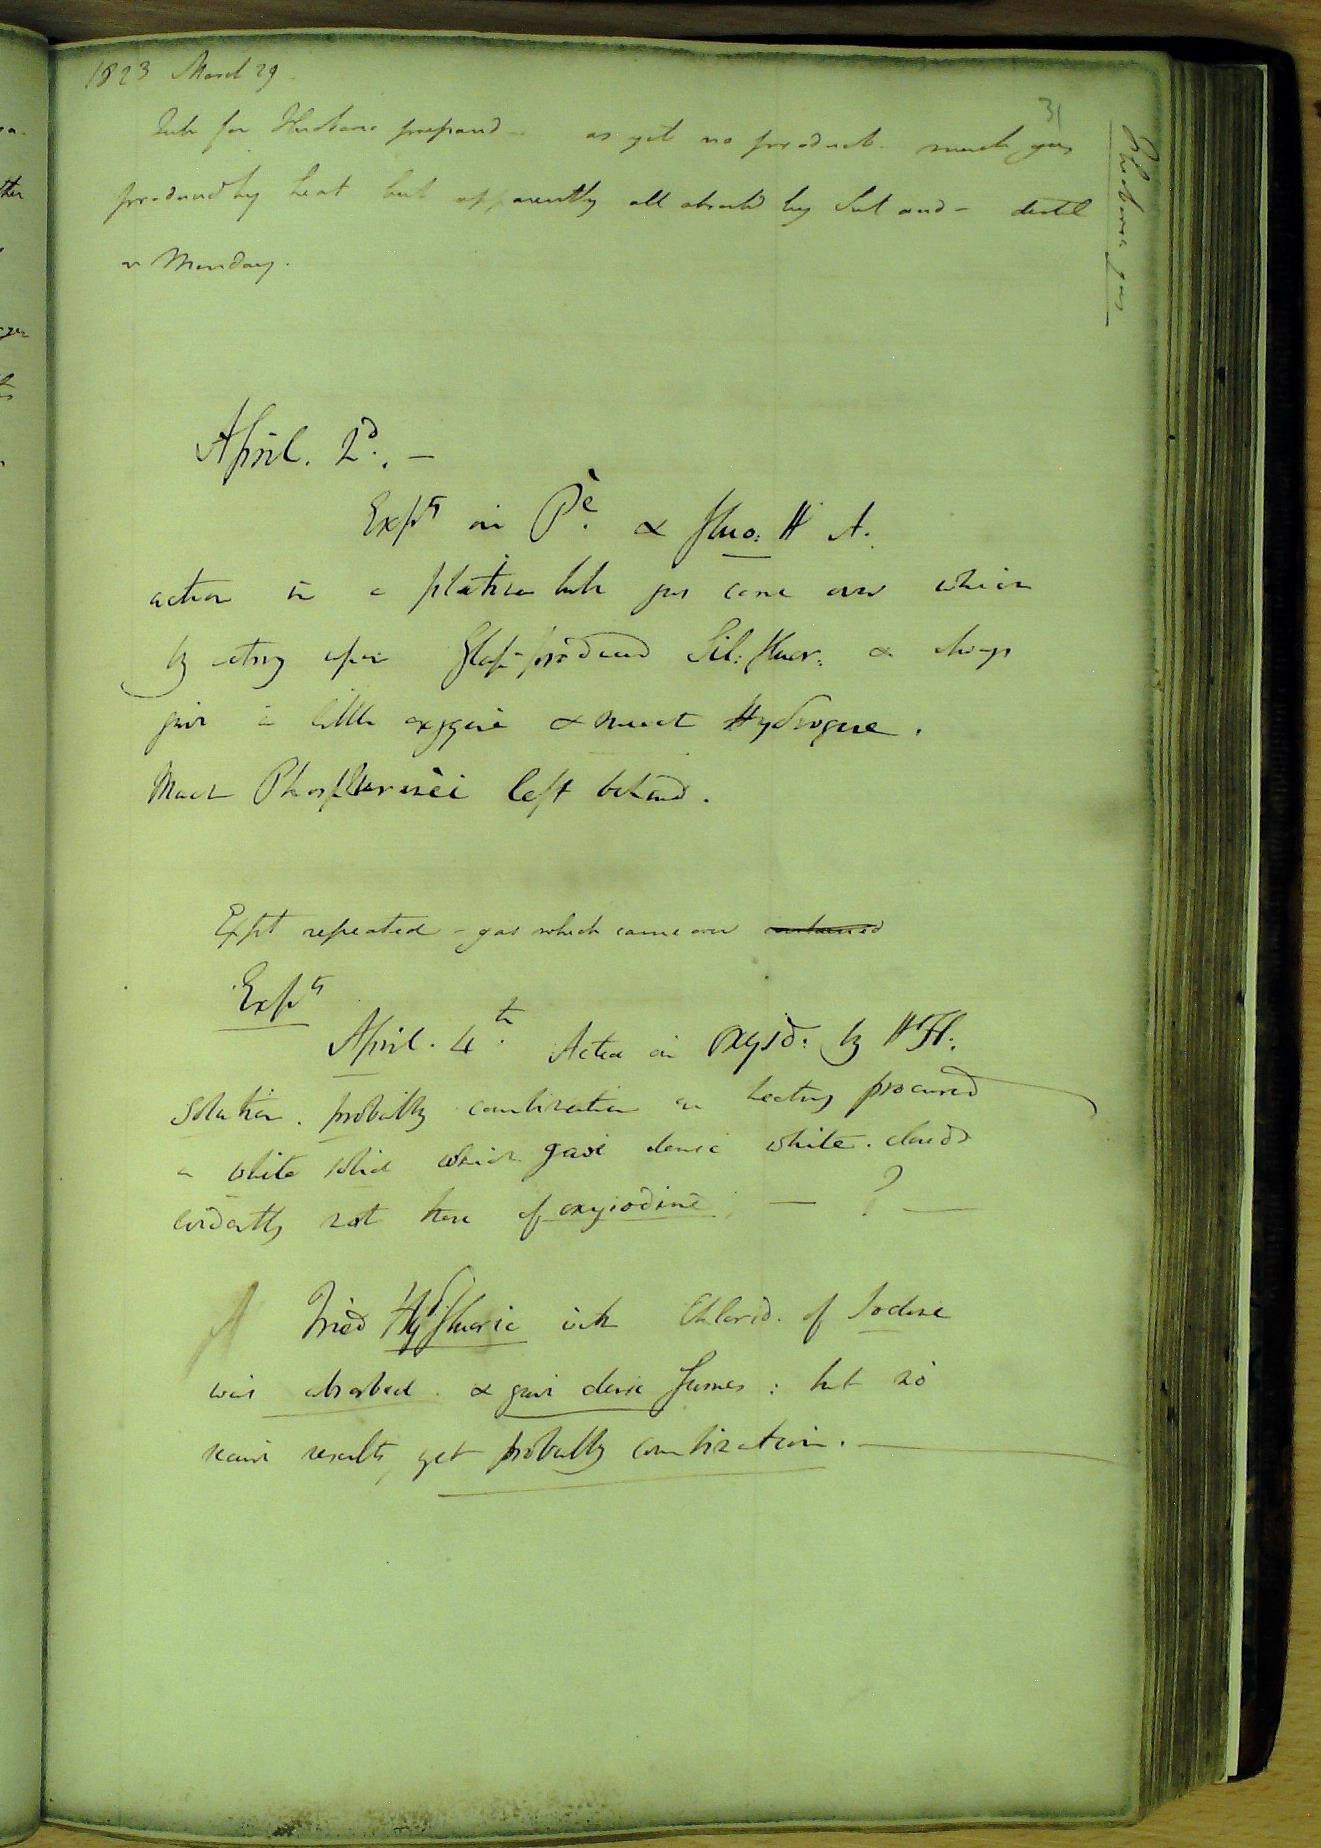 1823 March 29
31
Tube for Fluoboric prepared - as yet no product. much gas
produced by heat but apparently all absorbd by Sul acid - distil
on Monday.
Fluoboric gas
April. 2d. -
Expts on Pe. & fluo: H A.
action in a platina tube gas came over which
by acting upon Glass produced Sil: fluor: & always
gave a little oxygene & much Hydrogene.
Much Phosphorus left behind.
Expt repeated - gas which came over
Expts
April. 4th. Acted on Oxyid: by H Fl:
solution. probably combination on heating procured
a white solid which gave dense white. clouds
evidently not those of oxyiodine ; — ? —
Tried HydFluoric with Chlorid. of Iodine
was absorbed. & gave dense fumes: but no
results, yet probably combination. —